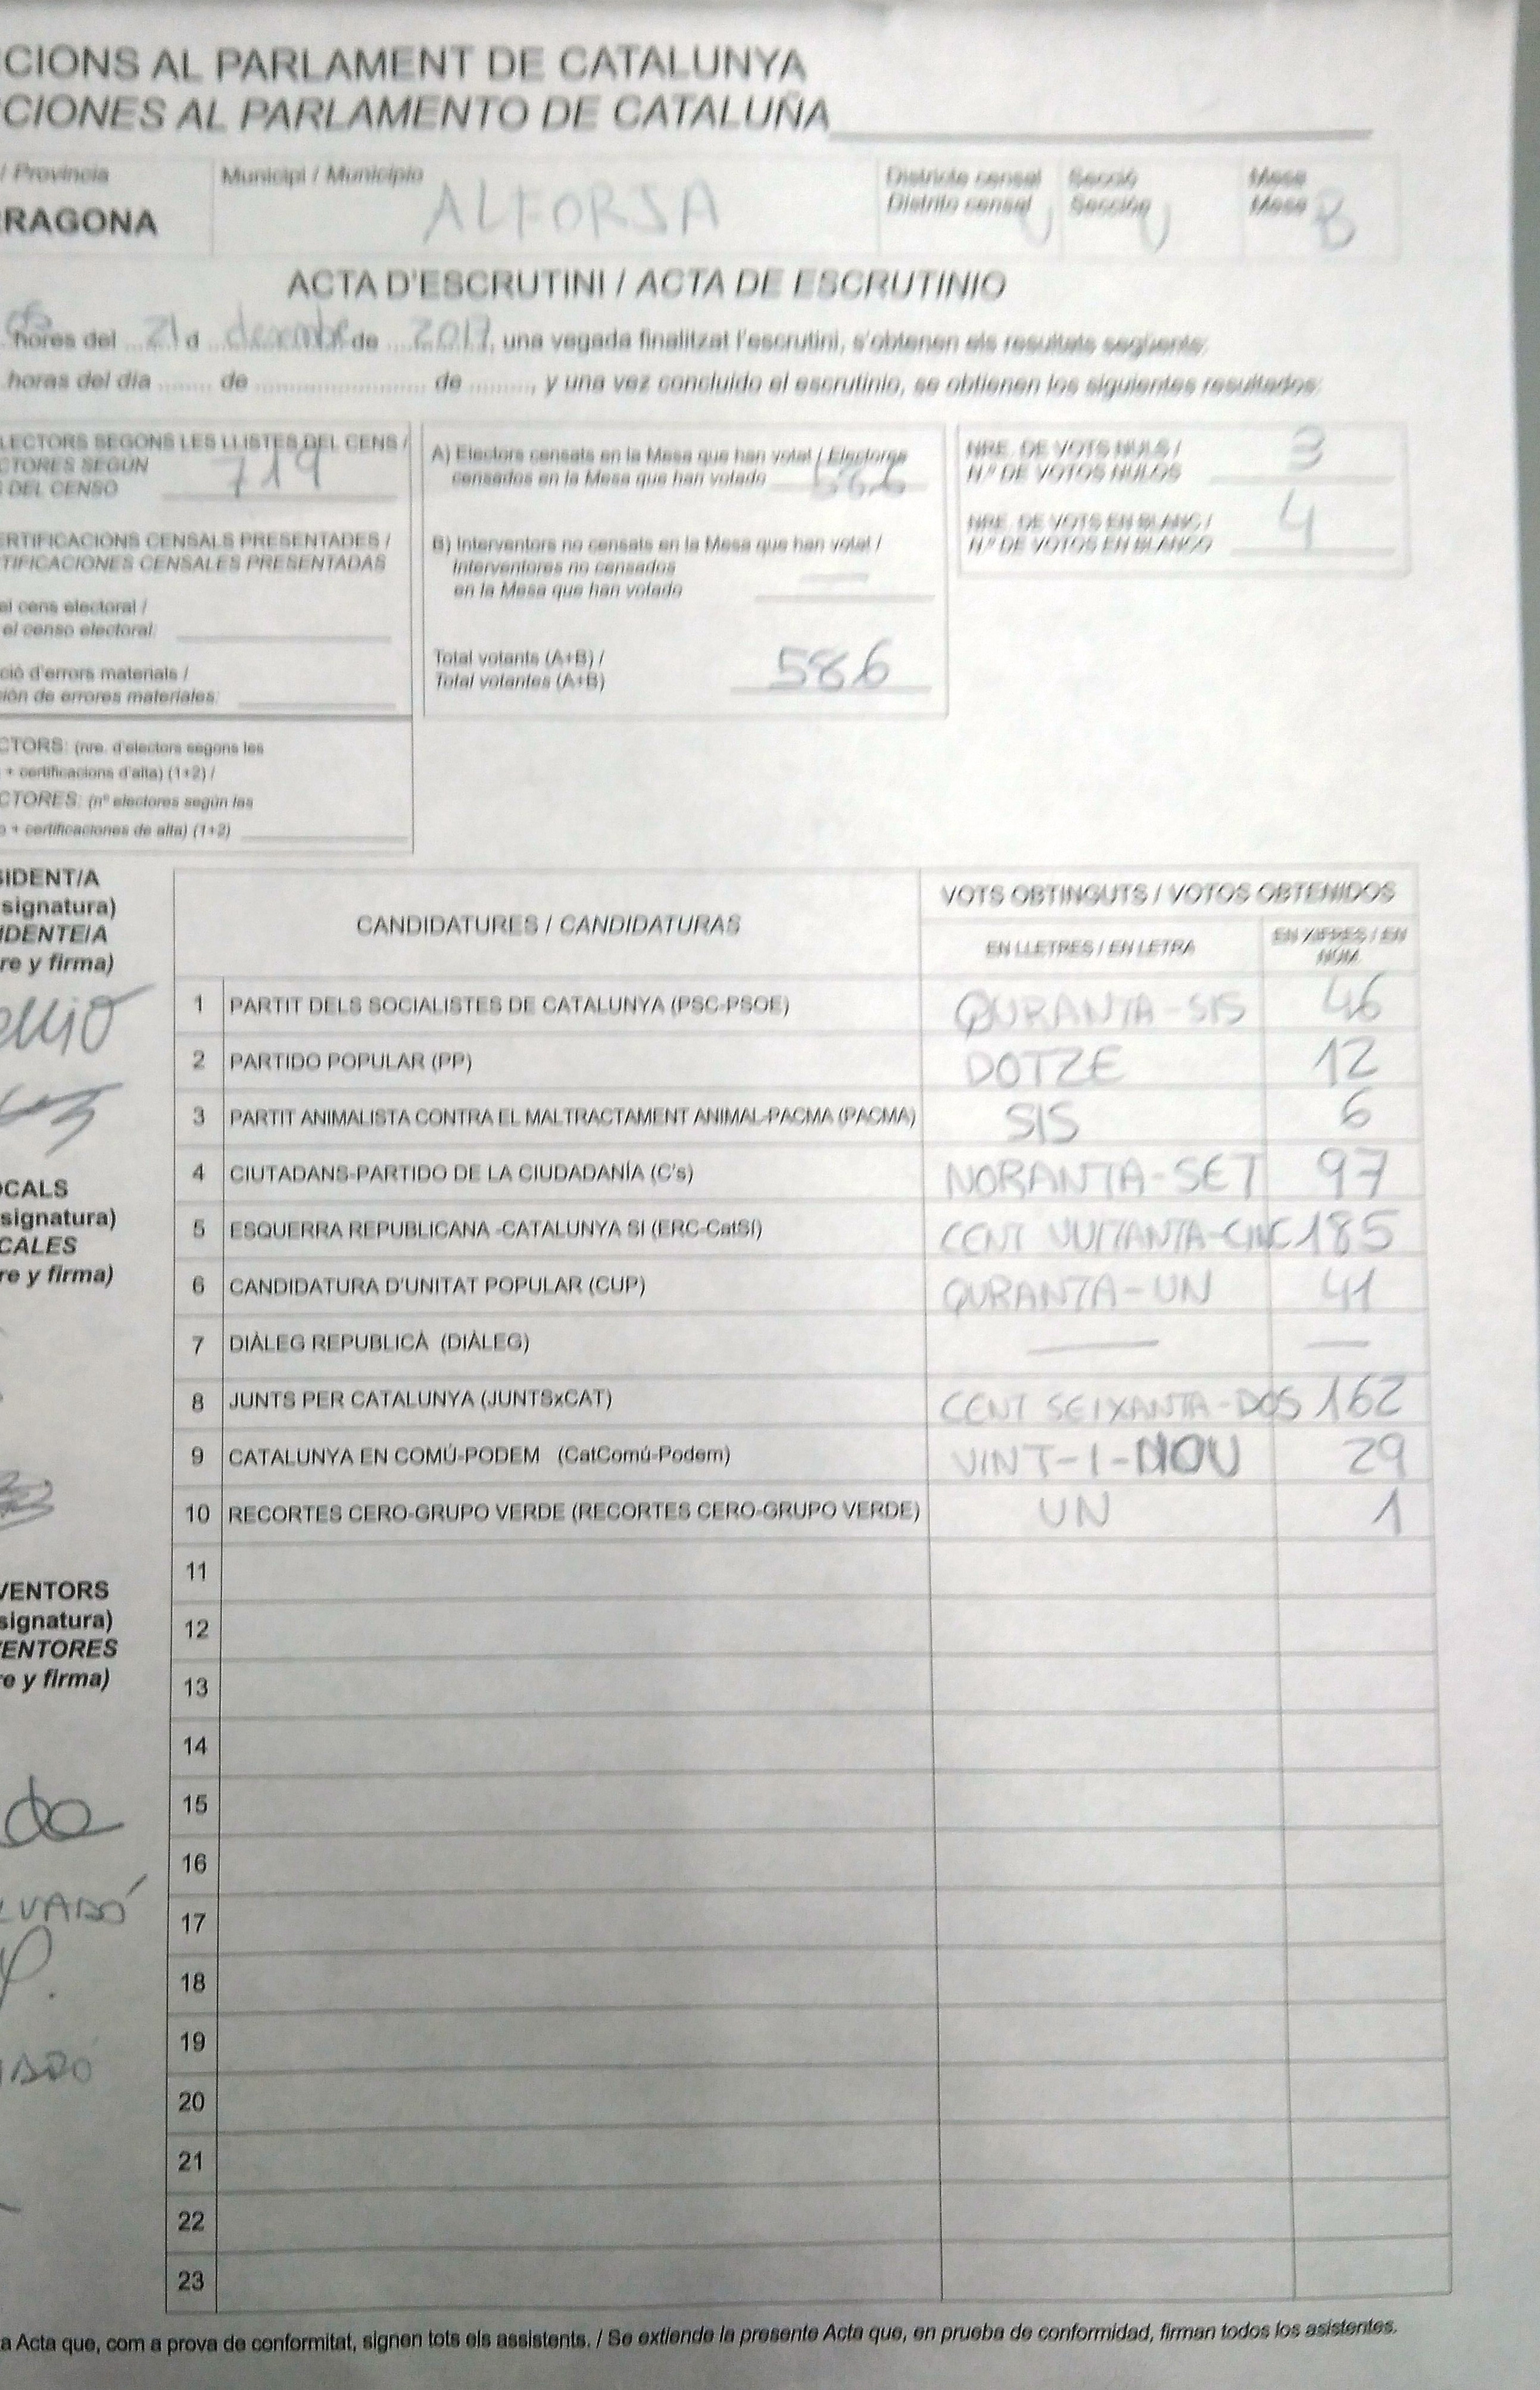 CIONS AL PARLAMENT DE CATALUNYA
CCIONES AL PARLAMENTO DE CATALUÑA
/ Provincia
RRAGONA
Municipi / Municipio
ALFORJA
Districte censal
Distrito censal U
Secció
Sección U
Mesa
Mesa B
ACTA D'ESCRUTINI / ACTA DE ESCRUTINIO
hores del 21 d desembre de 2017, una vegada finalitzat l'escrutini, s'obtenen els resultats següents:
horas del día ........ de ........................ de ........., y una vez concluido el escrutinio, se obtienen los siguientes resultados:
LECTORS SEGONS LES LLISTES DEL CENS /
CTORES SEGÚN
S DEL CENSO 719
ERTIFICACIONS CENSALS PRESENTADES /
TIFICACIONES CENSALES PRESENTADAS
el cens electoral /
el censo electoral:
ció d'errors materials /
ción de errores materiales:
CTORS: (nre. d'electors segons les
+ certificacions d'alta) (1+2) /
CTORES: (nº electores según las
o + certificaciones de alta) (1+2)
A) Electors censats en la Mesa que han votat / Electores
censados en la Mesa que han votado 586
B) Interventors no censats en la Mesa que han votat /
Interventores no censados
en la Mesa que han votado —
Total votants (A+B) /
Total votantes (A+B) 586
NRE. DE VOTS NULS /
N.º DE VOTOS NULOS 3
NRE. DE VOTS EN BLANC /
N.º DE VOTOS EN BLANCO 4
SIDENT/A
signatura)
IDENTE/A
re y firma)
OCALS
signatura)
CALES
re y firma)
VENTORS
signatura)
VENTORES
re y firma)
CANDIDATURES / CANDIDATURAS
VOTS OBTINGUTS / VOTOS OBTENIDOS
EN LLETRES / EN LETRA
EN XIFRES / EN
NÚM.
1 PARTIT DELS SOCIALISTES DE CATALUNYA (PSC-PSOE) QURANTA-SIS 46
2 PARTIDO POPULAR (PP) DOTZE 12
3 PARTIT ANIMALISTA CONTRA EL MALTRACTAMENT ANIMAL-PACMA (PACMA) SIS 6
4 CIUTADANS-PARTIDO DE LA CIUDADANÍA (C's) NORANTA-SET 97
5 ESQUERRA REPUBLICANA -CATALUNYA SÍ (ERC-CatSí) CENT VUITANTA-CINC 185
6 CANDIDATURA D'UNITAT POPULAR (CUP) QURANTA-UN 41
7 DIÀLEG REPUBLICÀ (DIÀLEG) — —
8 JUNTS PER CATALUNYA (JUNTSxCAT) CENT SEIXANTA-DOS 162
9 CATALUNYA EN COMÚ-PODEM (CatComú-Podem) VINT-I-NOU 29
10 RECORTES CERO-GRUPO VERDE (RECORTES CERO-GRUPO VERDE) UN 1
11
12
13
14
15
16
17
18
19
20
21
22
23
a Acta que, com a prova de conformitat, signen tots els assistents. / Se extiende la presente Acta que, en prueba de conformidad, firman todos los asistentes.